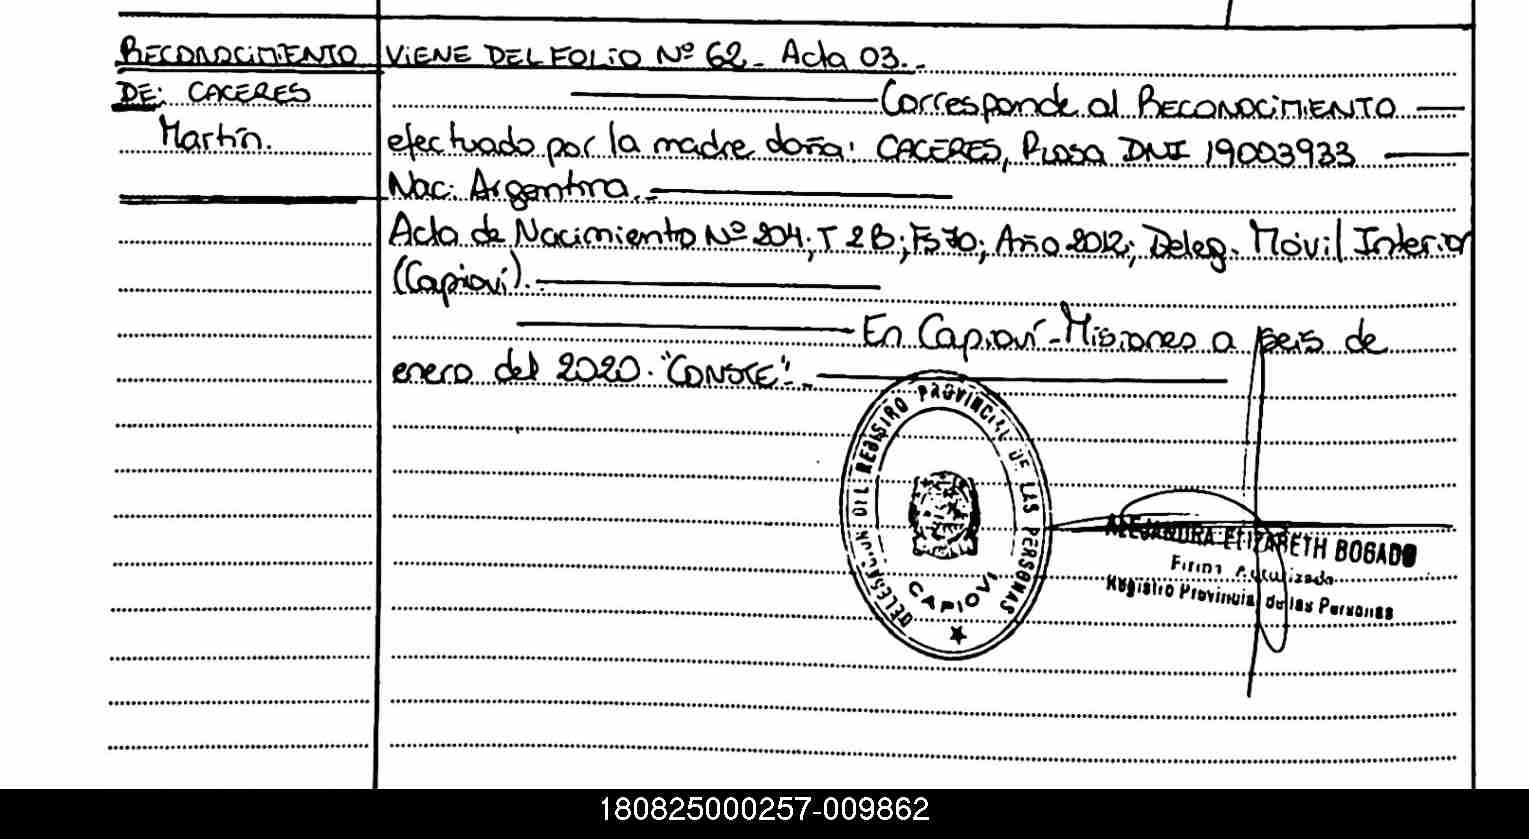 RECONOCIMIENTO
DE: CACERES
Martín.
VIENE DEL FOLIO Nº 62 - Acta 03.-
Corresponde al RECONOCIMIENTO
efectuado por la madre doña: CACERES, Rosa DNI 19003933
Nac. Argentina.
Acta de Nacimiento Nº 204; T 2B; Fs 70; Año 2012; Deleg. Móvil Interior
(Capioví).
En Capioví - Misiones a seis de
enero del 2020. "CONSTE".
DELEGACION DEL REGISTRO PROVINCIAL DE LAS PERSONAS
CAPIOVI
ALEJANDRA ELIZABETH BOGADO
Firma Autorizada
Registro Provincial de las Personas
180825000257-009862